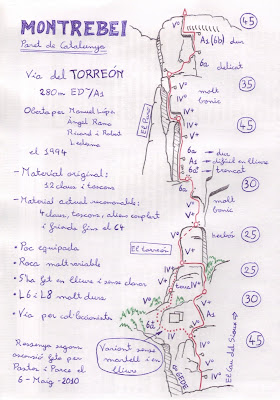 MONTREBEI
Paret de Catalunya
Via del TORREÓN
280m ED-/A1
Oberta per Manuel López,
Ángel Rano
Ricard i Robert
Ledesma
el 1994
- Material original:
12 claus i tascons
- Material actual recomanable:
4 claus, tascons, aliens complert
i friends fins el C4
• Poc equipada
• Roca molt variable
• S'ha fet en lliure i sense claus
• L6 i L8 molt dures
• Via per col·leccionista
Ressenya segons
ascensió feta per
Pastor i Parce el
6 - Maig - 2010
V°
45
A1 (6b) dur
6a
delicat
V+
IV°
V°
35
molt
bonic
El Pou
V+
IV+
V+
45
6a → dur
A1 → difícil en lliure
6a → trencat
30
V+
molt
bonic
V+
25
bonic
El torreón
V°
IV+
25
V+
6a
V+
30
Variant sense
martell i en
lliure
V°
IV°
45